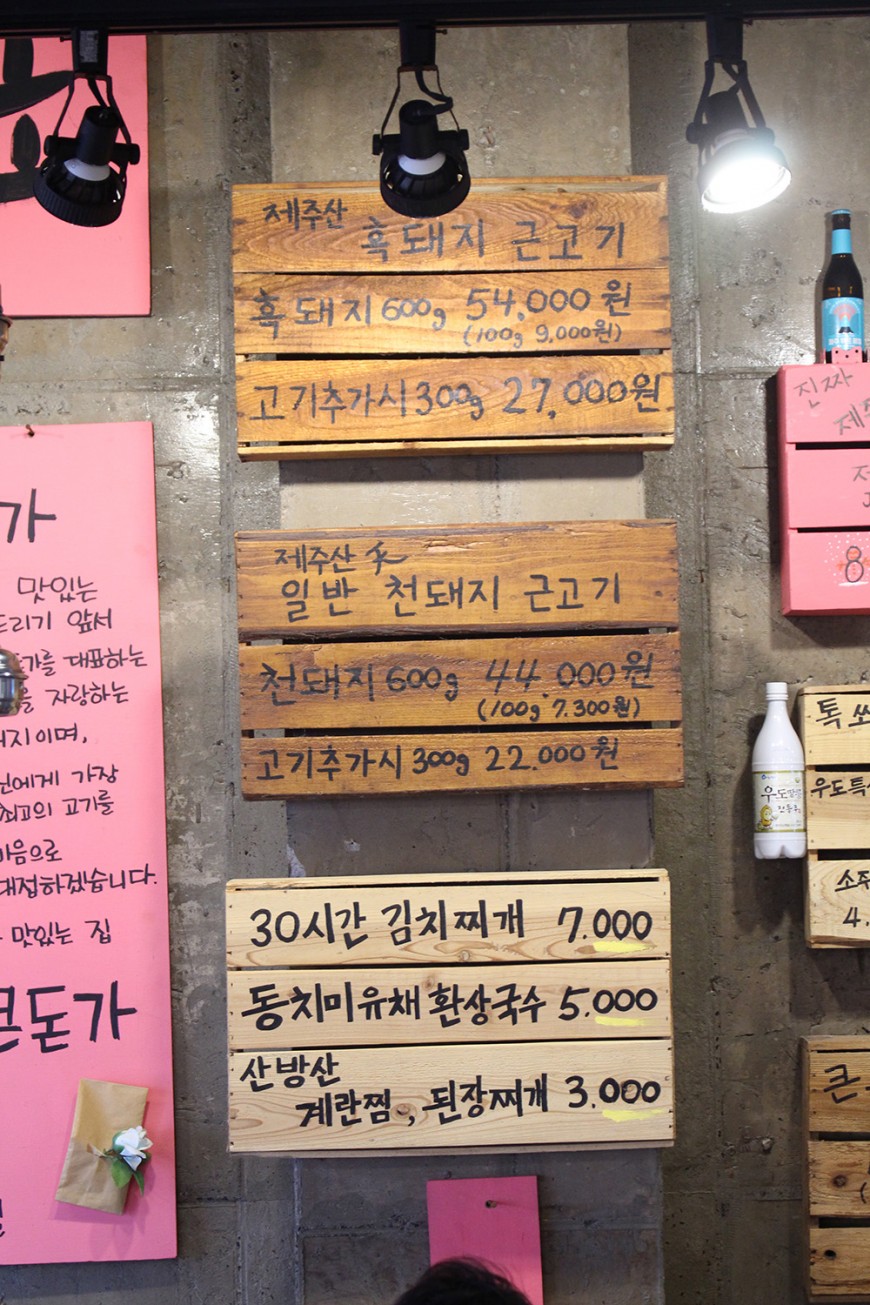 제주산
흑돼지 근고기
흑돼지 600g 54,000원
(100g 9,000원)
고기추가시 300g 27,000원
제주산
일반 천돼지 근고기
천돼지 600g 44.000원
(100g 7.300원)
고기추가시 300g 22.000원
30시간 김치찌개 7.000
동치미유채 환상국수 5.000
산방산
계란찜, 된장찌개 3.000
가
맛있는
드리기 앞서
가를 대표하는
을 자랑하는
이며,
에게 가장
최고의 고기를
마음으로
대접하겠습니다.
맛있는 집
큰돈가
진짜
제주
8
톡 쏘
우도특산
소주
4.
큰
우도땅콩